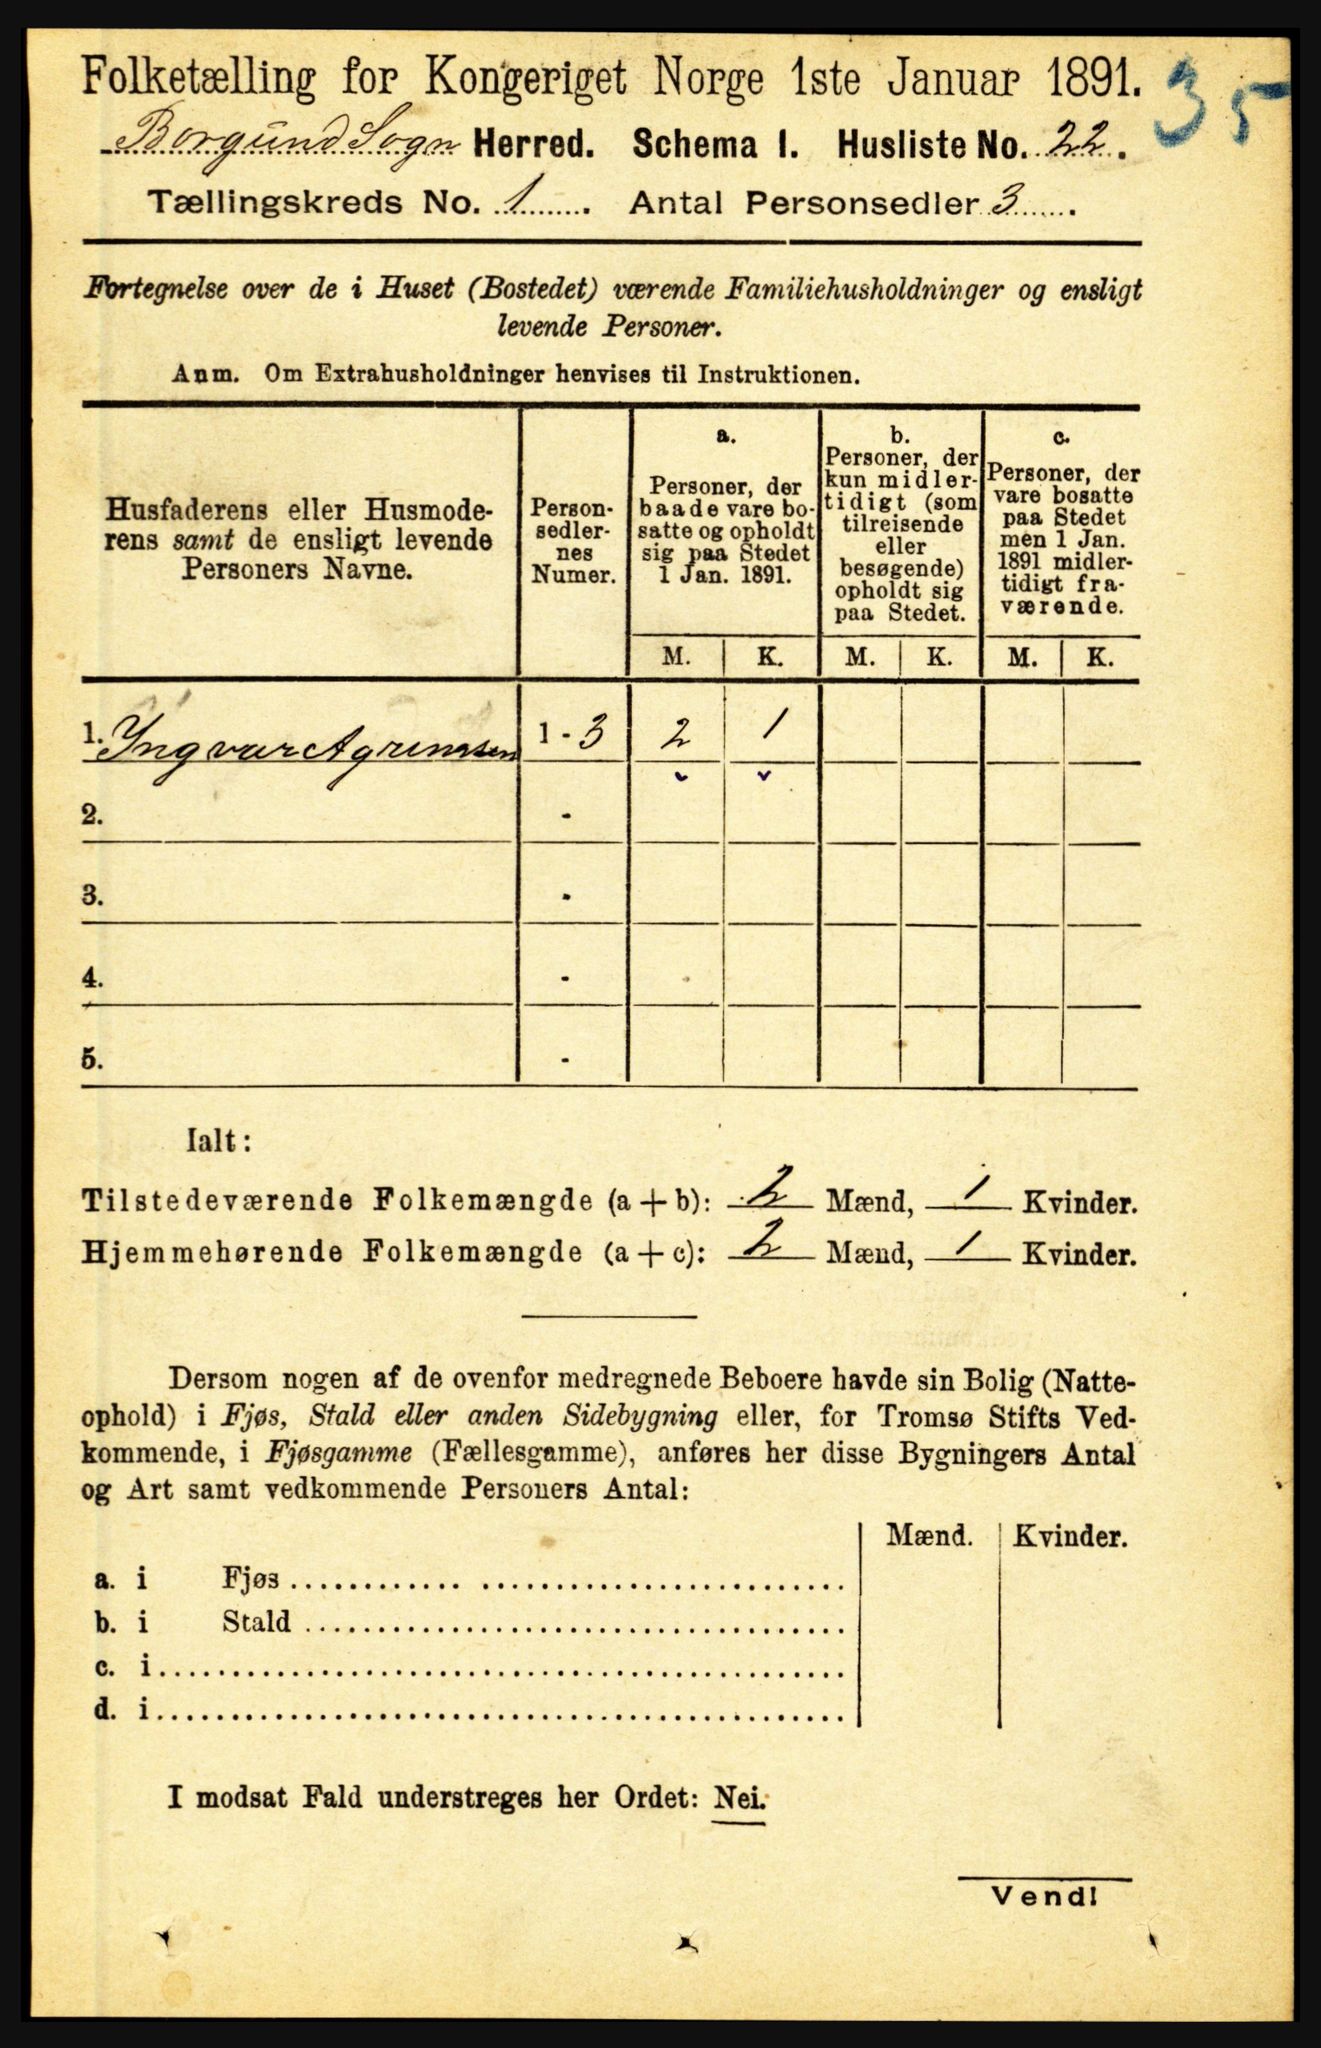 Folketælling for Kongeriget Norge 1ste Januar 1891.
35
Borgund Sogn Herred. Schema I. Husliste No. 22.
Tællingskreds No. 1. Antal Personsedler 3.
Fortegnelse over de i Huset (Bostedet) værende Familiehusholdninger og ensligt
levende Personer.
Anm. Om Extrahusholdninger henvises til Instruktionen.
Husfaderens eller Husmode-
rens samt de ensligt levende
Personers Navne.
Person-
sedler-
nes
Numer.
a.
Personer, der
baade vare bo-
satte og opholdt
sig paa Stedet
1 Jan. 1891.
b.
Personer, der
kun midler-
tidigt (som
tilreisende
eller
besøgende)
opholdt sig
paa Stedet.
c.
Personer, der
vare bosatte
paa Stedet
men 1 Jan.
1891 midler-
tidigt fra-
værende.
M. K. M. K. M. K.
1. Ingvar Agrimsen 1 - 3 2 1
2. -
3. -
4. -
5. -
Ialt:
Tilstedeværende Folkemængde (a + b): 2 Mænd, 1 Kvinder.
Hjemmehørende Folkemængde (a + c): 2 Mænd, 1 Kvinder.
Dersom nogen af de ovenfor medregnede Beboere havde sin Bolig (Natte-
ophold) i Fjøs, Stald eller anden Sidebygning eller, for Tromsø Stifts Ved-
kommende, i Fjøsgamme (Fællesgamme), anføres her disse Bygningers Antal
og Art samt vedkommende Personers Antal:
Mænd. Kvinder.
a. i Fjøs
b. i Stald
c. i
d. i
I modsat Fald understreges her Ordet: Nei.
Vend!